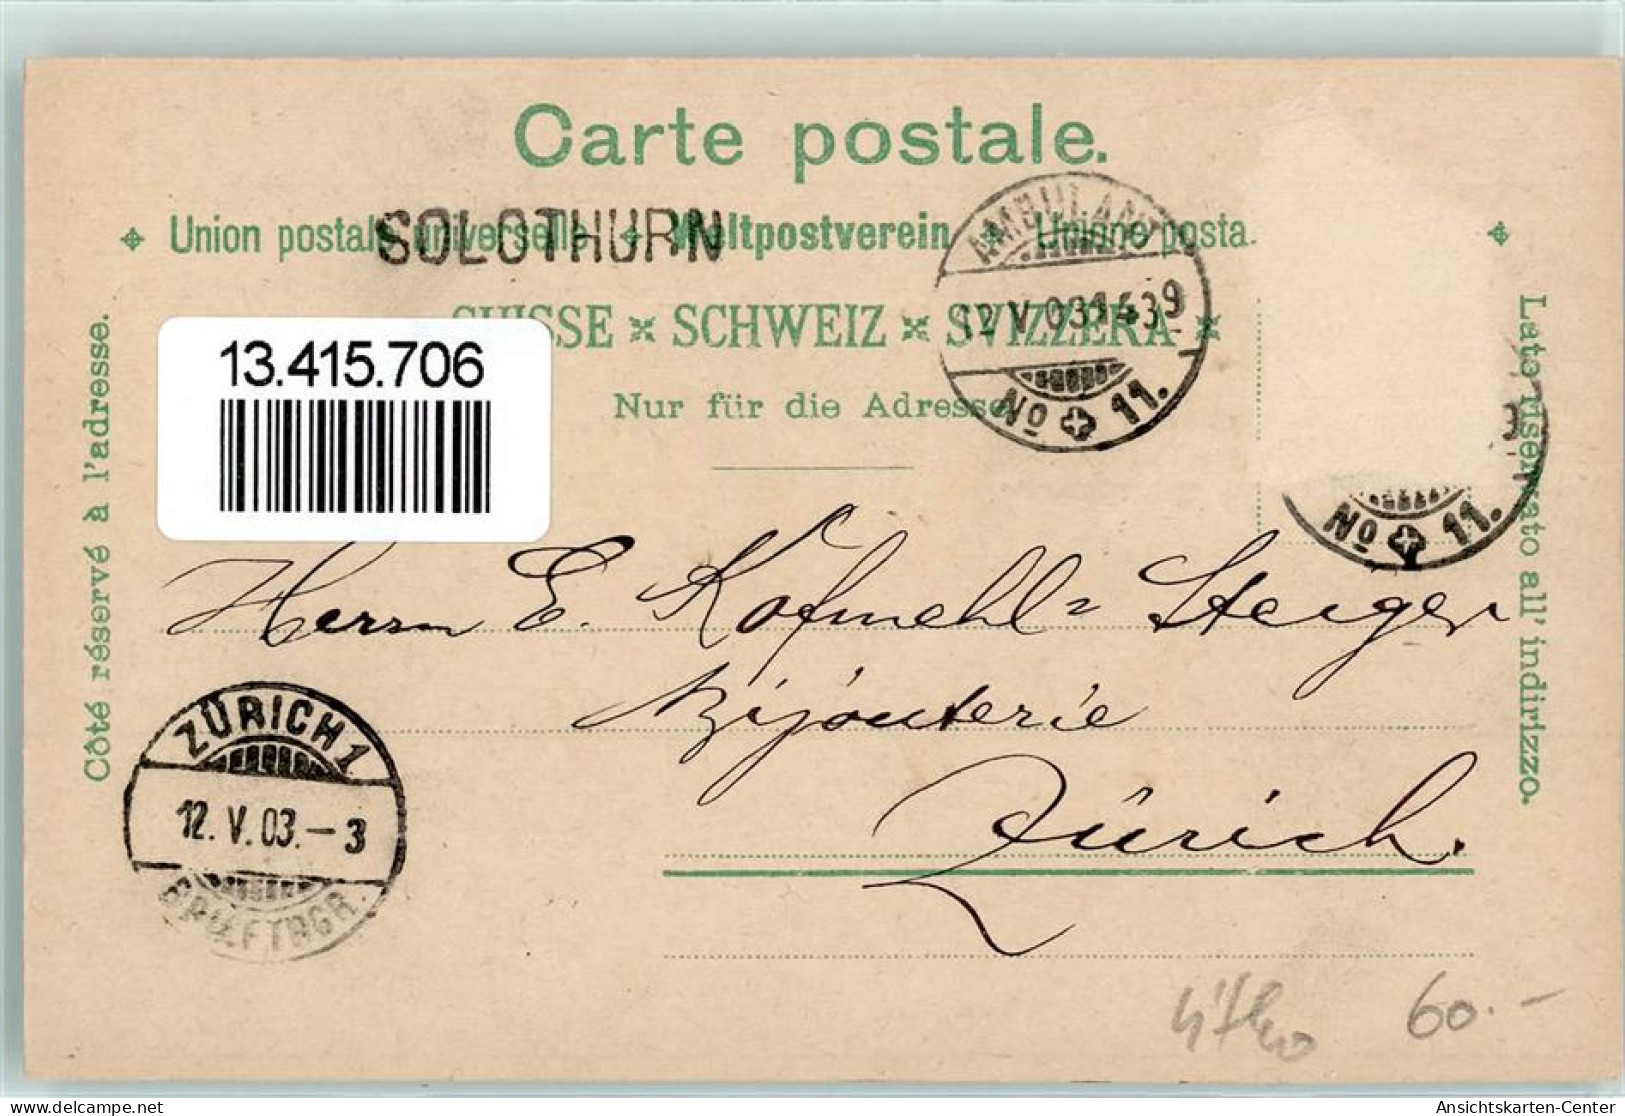 Carte postale.
Union postale universelle Weltpostverein Unione posta
SOLOTHURN
AMBULANT
12 V 03 1439
No 11.
SUISSE SCHWEIZ SVIZZERA
Nur für die Adresse
Côté réservé à l'adresse.
Lato riservato all' indirizzo.
13.415.706
No 11.
Herrn E. Kofmehl-Steiger
Bijouterie
Zürich.
ZÜRICH 1
12. V. 03. – 3
BRIEFTRGR.
60.-
Ansichtskarten-Center